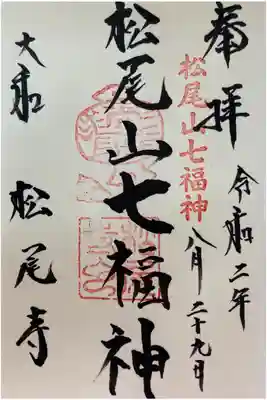 奉拝
松尾山七福神
令和二年
八月二十九日
松尾山七福神
大和
松尾寺